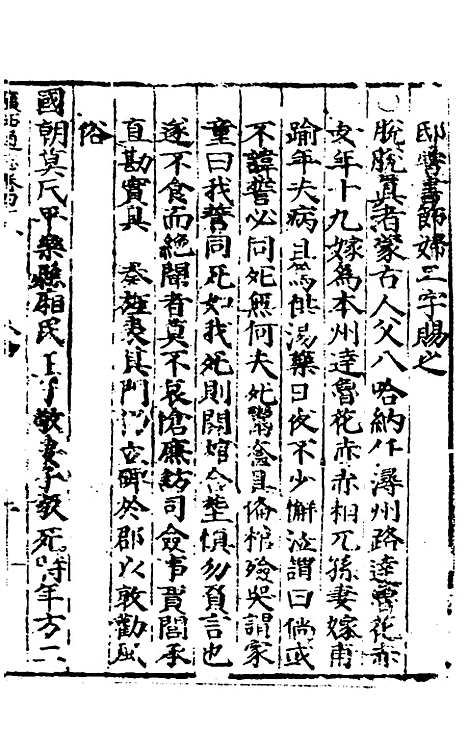 邸學書節婦三字賜之
脫脫真者蒙古人父八哈納仕潯州路達魯花赤
女年十九嫁為本州達魯花赤赤相兀孫妻嫁甫
踰年夫病且篤供湯藥日夜不少懈泣謂曰倘或
不諱誓必同死無何夫死鬻奩具俻棺殮哭謂家
童曰我誓同死如我死則開棺合塟慎勿負言也
遂不食而絕聞者莫不哀愴廉訪司僉事賈閭承
直勘實具 奏旌表其門 立碑於郡以敦勸風
俗
國朝莫氏甲樂縣廂民王子敬妻子敬死時年方二
廣西通志卷四十